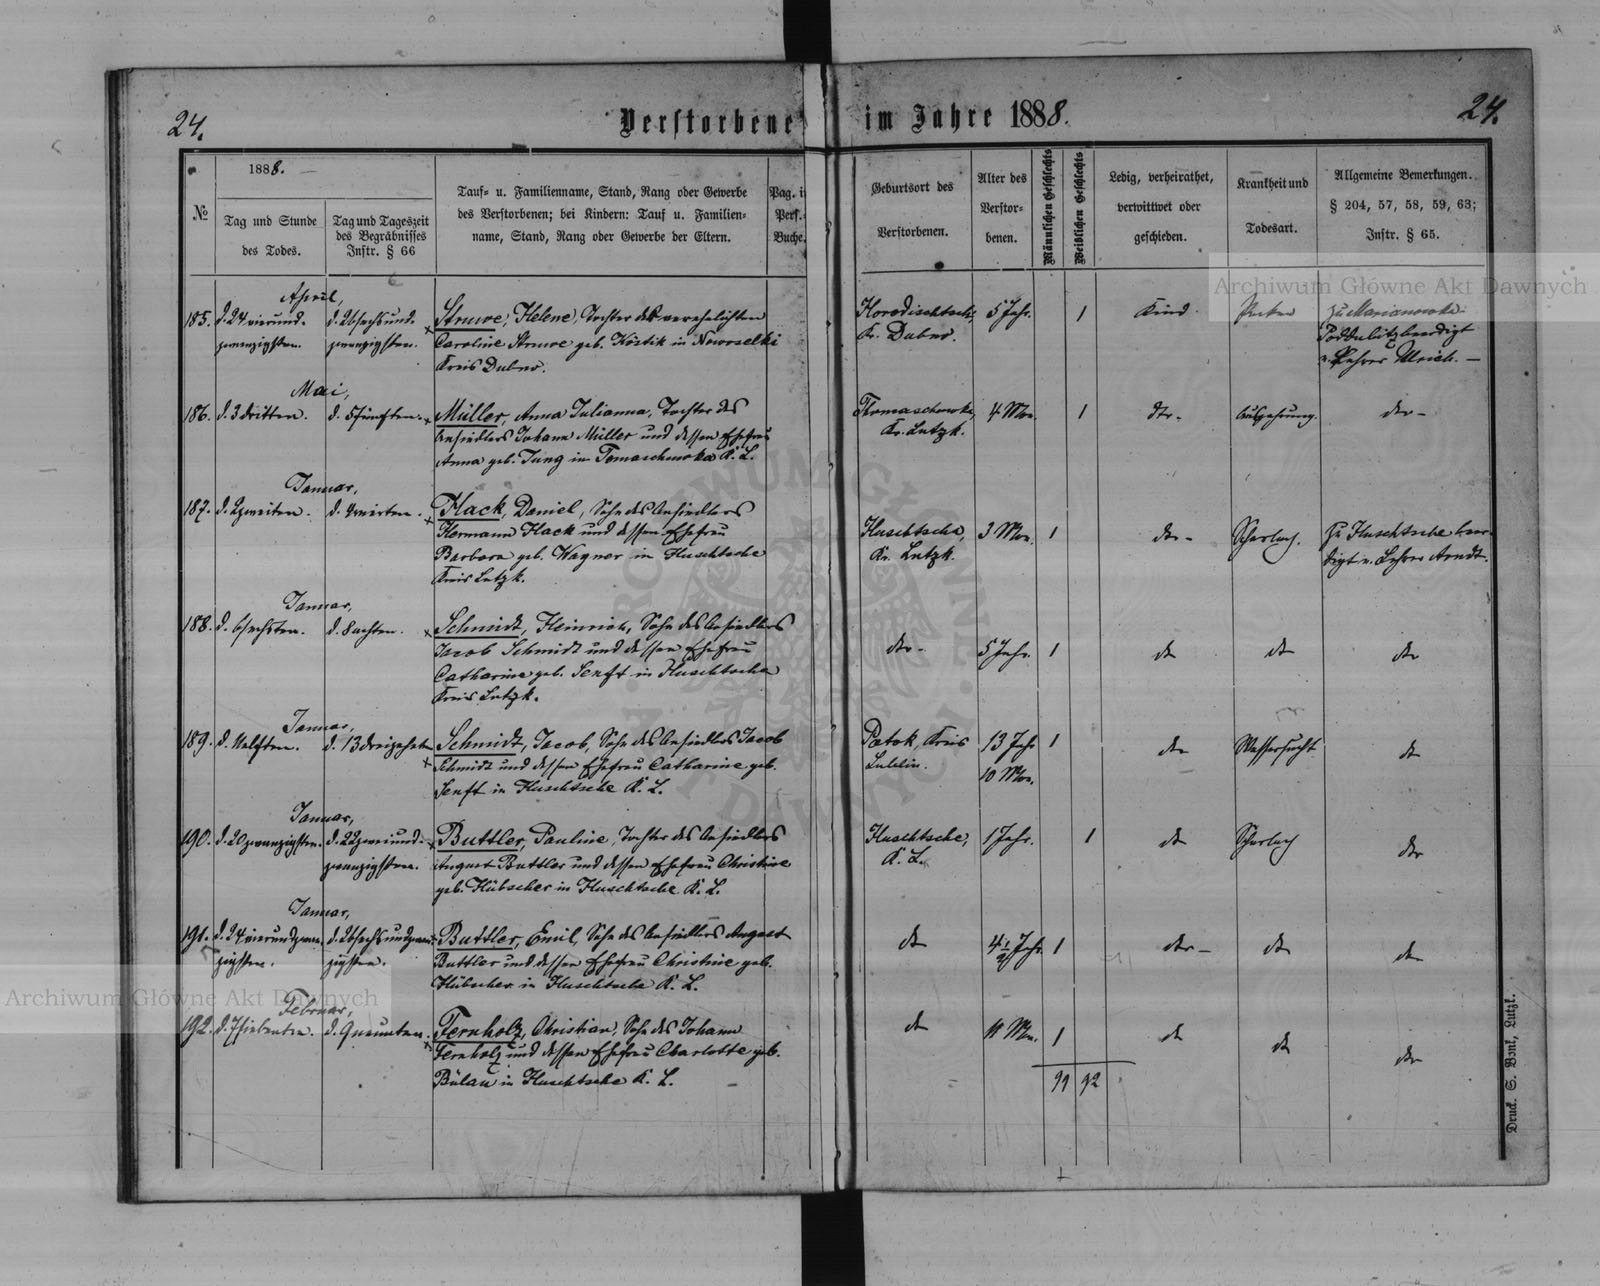 24.
Verstorbene im Jahre 1888.
24.
№
1888.
Tag und Stunde
des Todes.
Tag und Tageszeit
des Begräbnisses
Instr. § 66
Tauf- u. Familienname, Stand, Rang oder Gewerbe
des Verstorbenen; bei Kindern: Tauf u. Familien-
name, Stand, Rang oder Gewerbe der Eltern.
Pag. i
Pers.-
Buche.
Geburtsort des
Verstorbenen.
Alter des
Verstor-
benen.
Männlichen Geschlechts
Weiblichen Geschlechts
Ledig, verheirathet,
verwittwet oder
geschieden.
Krankheit und
Todesart.
Allgemeine Bemerkungen.
§ 204, 57, 58, 59, 63;
Instr. § 65.
April,
185. d. 24 vierund-
zwanzigsten.
d. 26 sechsund-
zwanzigsten.
Struwe, Helene, Tochter der verehelichten
Caroline Struwe geb. in Noworselki
Kreis Dubno.
Kr. Dubno.
5 Jahr.
1
Kind.
zu
beerdigt
v. Lehrer Ulrich. —
Mai,
186. d. 3 dritten.
d. 5 fünften.
Müller, Anna Julianna, Tochter des
Ansiedlers Johann Müller und dessen Ehefrau
Anna geb. Jung in Tomaschowka K. L.
Kr. Lutzk.
4 Mon.
1
dto-
dto-
Januar,
187. d. 2 zweiten.
d. 4 vierten.
Hack, Daniel, Sohn des Ansiedlers
Hermann Hack und dessen Ehefrau
Barbara geb. Wagner in Huschtsche
Kreis Lutzk.
Huschtsche,
Kr. Lutzk.
3 Mon.
1
dto-
Scharlach.
Zu Huschtsche beer-
digt v. Lehrer Arndt.
Januar,
188. d. 6 sechsten.
d. 8 achten.
Schmidt, Heinrich, Sohn des Ansiedlers
Jacob Schmidt und dessen Ehefrau
Catharine geb. Senft in Huschtsche
Kreis Lutzk.
dto-
5 Jahr.
1
dto
dto
dto
Januar,
189. d. 11 elften.
d. 13 dreizehnten
Schmidt, Jacob, Sohn des Ansiedlers Jacob
Schmidt und dessen Ehefrau Catharine geb.
Senft in Huschtsche K. L.
Potok, Kreis
Lublin.
13 Jahr
10 Mon.
1
dto
Wassersucht
dto
Januar,
190. d. 20 zwanzigsten.
d. 22 zweiund-
zwanzigsten.
Buttler, Pauline, Tochter des Ansiedlers
August Buttler und dessen Ehefrau Christine
geb. Hübscher in Huschtsche K. L.
Huschtsche,
K. L.
1 Jahr.
1
dto
Scharlach
dto
Januar,
191. d. 24 vierundzwan-
zigsten.
d. 26 sechsundzwan-
zigsten.
Buttler, Emil, Sohn des Ansiedlers August
Buttler und dessen Ehefrau Christine geb.
Hübscher in Huschtsche K. L.
dto
4½ Jahr.
1
dto-
dto
dto
Februar,
192. d. 7 siebenten.
d. 9 neunten.
Fernholz, Christian, Sohn des Johann
Fernholz und dessen Ehefrau Charlotte geb.
Bülau in Huschtsche K. L.
dto
11 Mon.
1
dto
dto
dto
99 92
Druck. S. Bonk, Lutzk.
Archiwum Główne Akt Dawnych
Archiwum Główne Akt Dawnych